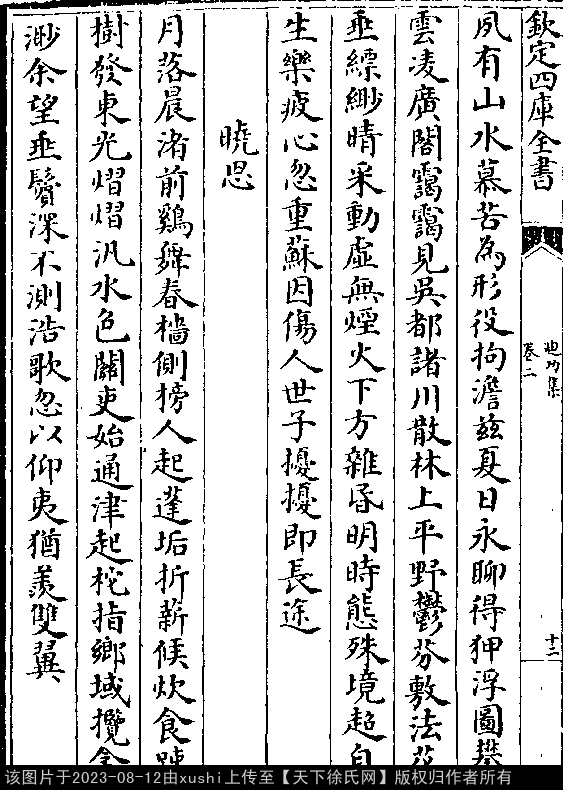 欽定四庫全書
迪功集
卷二
十二
夙有山水慕苦為形役拘澹兹夏日永聊得狎浮圖攀
雲凌廣閣靄靄見吳都諸川散林上平野鬱芬敷法花
垂縹緲晴采動虛無煙火下方雜昏明時態殊境超自
生樂疲心忽重蘇因傷人世子擾擾即長途
曉思
月落晨渚前鷄舞春檣側榜人起蓬垢折薪候炊食疎
樹發東光熠熠汎水色關吏始通津起柁指鄉域攬舍
渺余望垂鬢深不測浩歌忽以仰夷猶羨雙翼
该图片于2023-08-12由xushi上传至【天下徐氏网】版权归作者所有